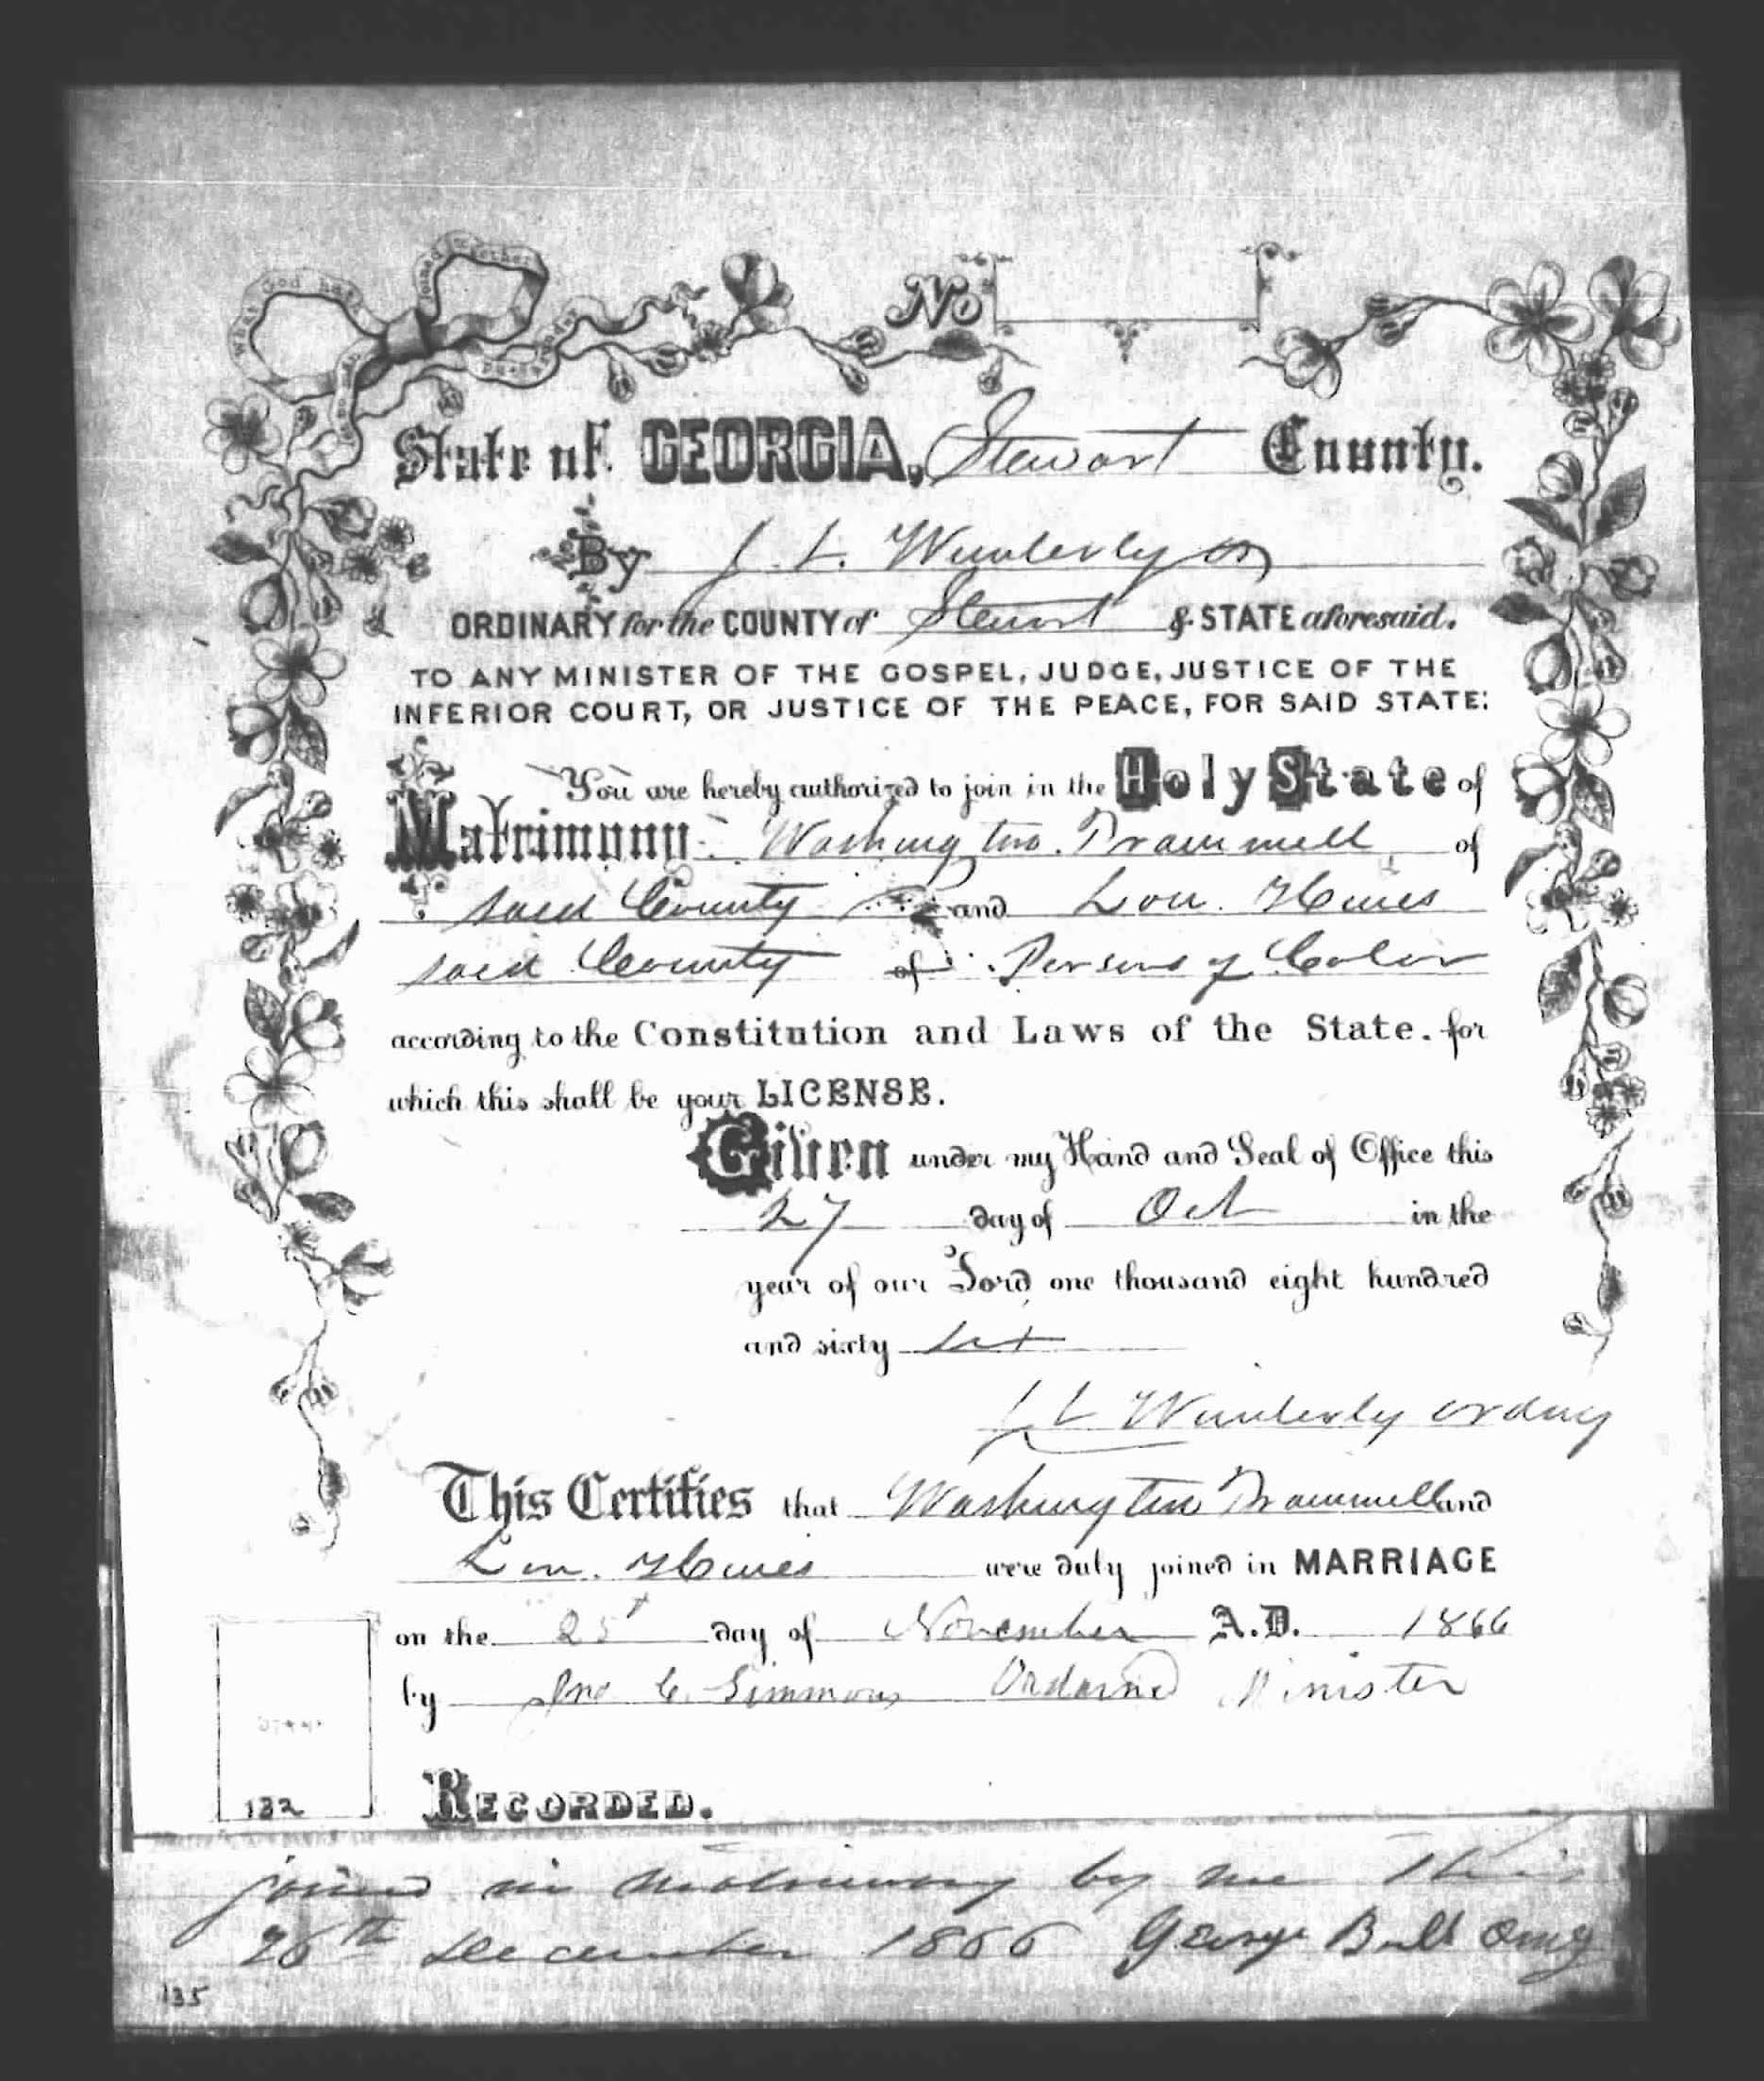 What God hath joined together let no man put asunder
No
State of GEORGIA, Stewart County.
By J. L. Wimberly
ORDINARY for the COUNTY of Stewart & STATE aforesaid.
TO ANY MINISTER OF THE GOSPEL, JUDGE, JUSTICE OF THE
INFERIOR COURT, OR JUSTICE OF THE PEACE, FOR SAID STATE:
You are hereby authorized to join in the Holy State of
Matrimony Washington Trammell of
said County and Lou. Hines
said County of Persons of Color
according to the Constitution and Laws of the State. for
which this shall be your LICENSE.
Given under my Hand and Seal of Office this
27 day of Oct in the
year of our Lord one thousand eight hundred
and sixty six
J L Wimberly ordny
This Certifies that Washington Trammell and
Lou. Hines were duly joined in MARRIAGE
on the 25 day of November A.D. 1866
by Jno C. Simmons Ordained Minister
STAMP
132
RECORDED.
joined in matrimony by me this
26th December 1866 George Ball
135